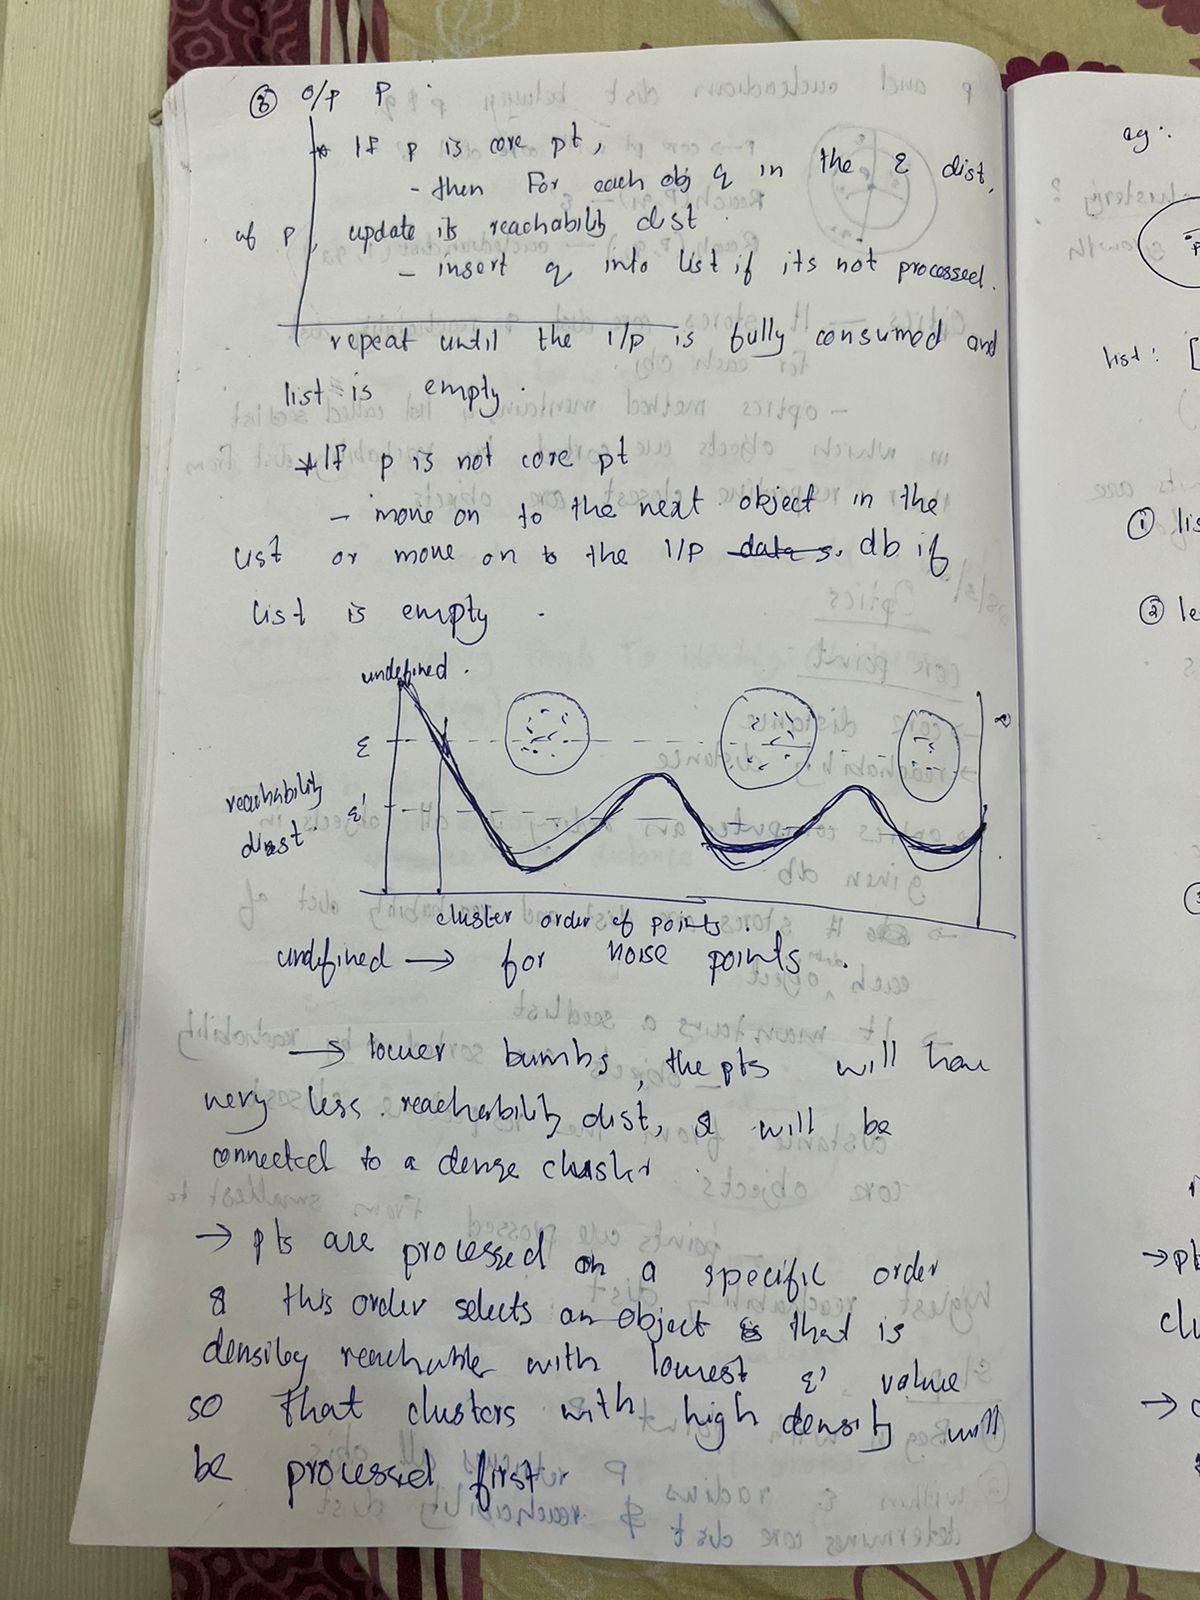 ③ O/P P.
* If p is core pt,
- then For each obj q in the ε dist.
of p, update its reachability dist
- insert q into list if its not processed.
repeat until the I/P is fully consumed and
list is empty.
* If p is not core pt
- move on to the next object in the
list or move on to the I/P db if
list is empty.
undefined.
ε
∞
reachability
dist.
ε'
cluster order of points.
undefined → for noise points.
→ lower bumbs, the pts will have
very less reachability dist, & will be
connected to a dense cluster
→ pts are processed in a specific order
& this order selects an object that is
density reachable with lowest ε' value
so that clusters with high density will
be processed first.
eg:
list: [
① lis
② le
→ pt
clu
→